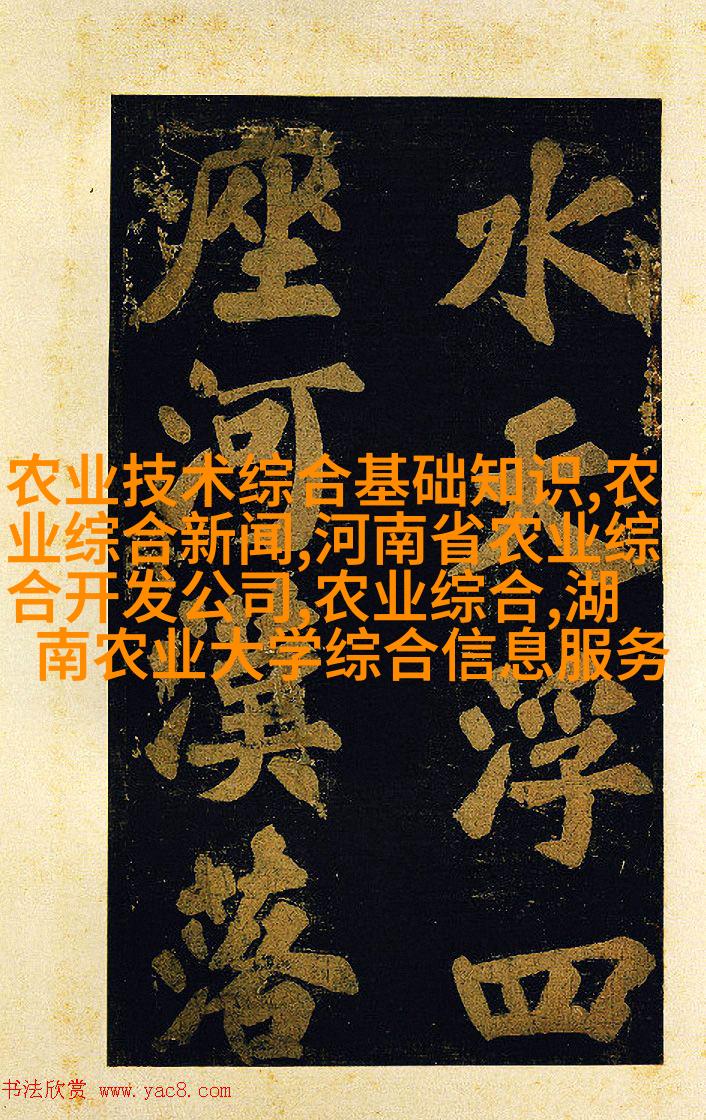 水天浮四
座河漢落
农业技术综合基础知识,农
业综合新闻,河南省农业综
合开发公司,农业综合,湖
南农业大学综合信息服务
书法欣赏 www.yac8.com